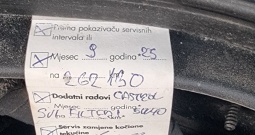 Prema pokazivaču servisnih
intervala ili
Mjesec 9 godina 25
na 262 130
Dodatni radovi CASTROL
Mjesec godina
SVI FILTERI 5W40
Servis zamjene kočione
tekućine